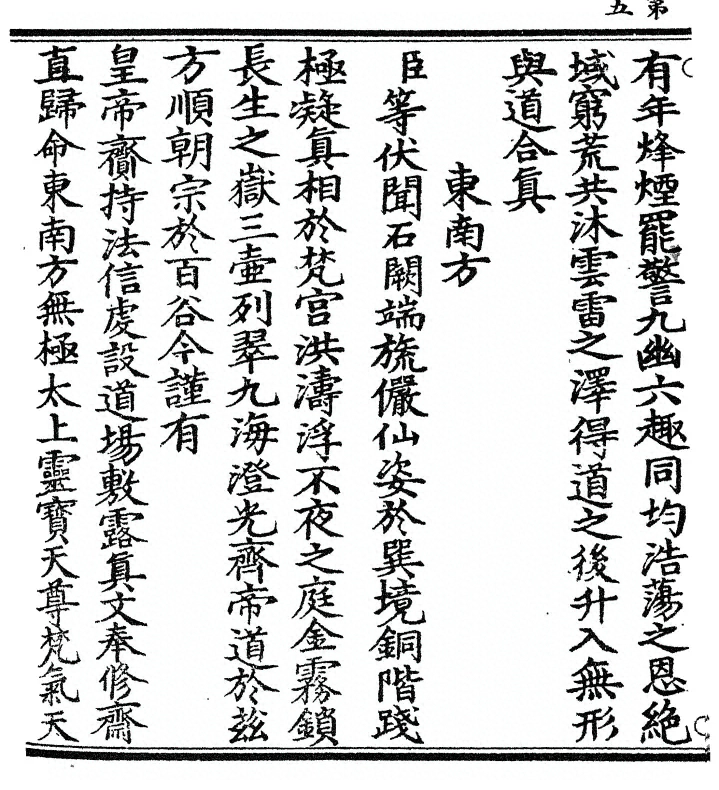 第五
有年烽煙罷警九幽六趣同均浩蕩之恩絶
域窮荒共沐雲雷之澤得道之後升入無形
與道合真
東南方
臣等伏聞石闕端旒儼仙姿於巽境銅階踐
極凝真相於梵宫洪濤浮不夜之庭金霧鎖
長生之嶽三壺列翠九海澄光齊帝道於兹
方順朝宗於百谷今謹有
皇帝齎持法信虔設道場敷露真文奉修齋
直歸命東南方無極太上靈寶天尊梵氣天